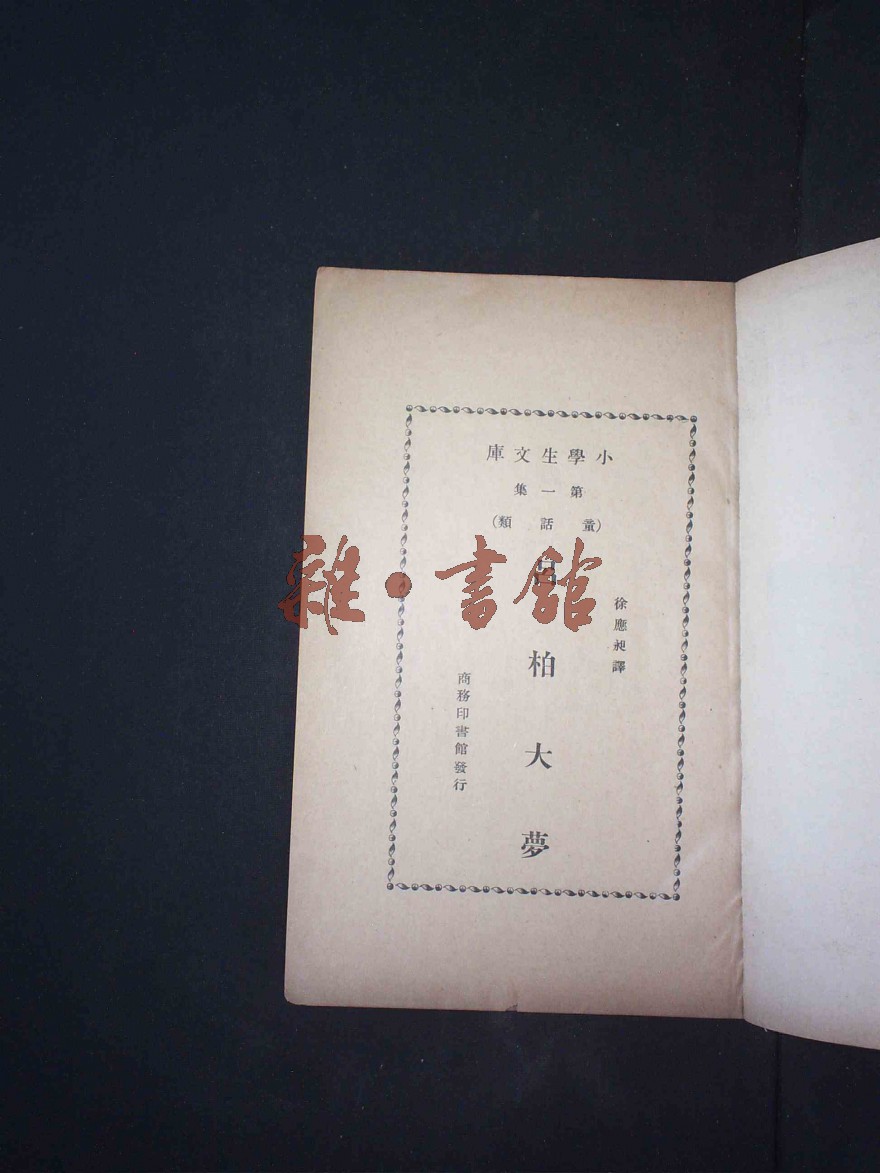 小學生文庫
第一集
(童話類)
徐應昶譯
呂柏大夢
商務印書館發行
雜·書館